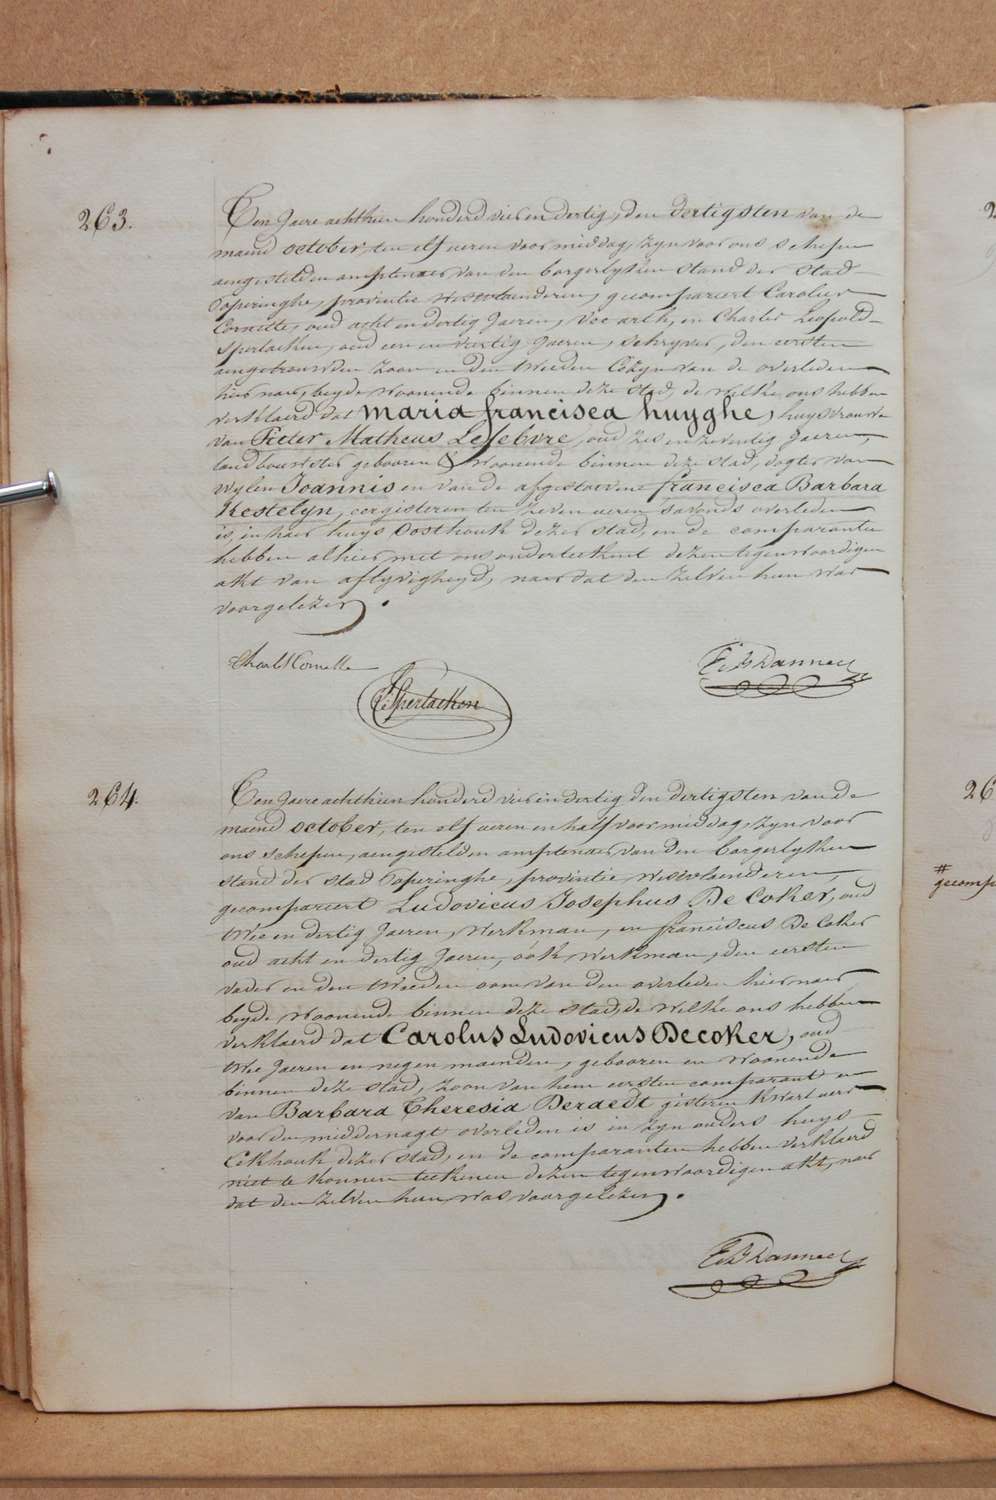 263.
Ten Jaere achthien honderd vier en dertig, den dertigsten van de
maend october, ten elf ueren voor middag, zyn voor ons schepen
aengestelden amptenaer van den borgerlyken stand der stad
Poperinghe, provintie Westvlaenderen, gecompareert Carolus
Cornette, oud acht en dertig Jaeren, en Charles Leopold
Sperlaeken, oud een en veertig Jaeren, schryver, den eersten
aengetrouwden zoon en den tweeden Cozyn van de overleden
hier naer, beyde woonende binnen deze stad, de welke ons hebben
verklaerd dat maria francisca huyghe, huysvrouwe
van Pieter Matheus Lefebvre, oud zes en zeventig Jaeren,
landbouwster gebooren & woonende binnen deze stad, dogter van
wylen Joannis en van de afgestorvene francisca Barbara
Kestelyn, eergisteren ten zeven ueren savonds overleden
is, in haer huys Oosthouk dezer stad, en de comparanten
hebben alhier met ons onderteekent dezen tegenwoordigen
akt van aflyvigheyd, naer dat den zelven hun was
voorgelezen.
Charles Cornette
C: Sperlaeken
F: B Dannee
264.
Ten Jaere achthien honderd vier en dertig den dertigsten van de
maend october, ten elf ueren en half voor middag, zyn voor
ons schepen, aengestelden amptenaer van den borgerlyken
stand der stad Poperinghe, provintie, Westvlaenderen,
gecompareert Ludovicus Josephus De Coker, oud
twee en dertig Jaeren, werkman, en franciscus De Coker
oud acht en dertig Jaeren, ook, werkman, den eersten
vader en den tweeden oom van den overleden hier naer
beyde woonende binnen deze stad, de welke ons hebben
verklaerd dat Carolus Ludovicus Decoker, oud
twee Jaeren en negen maenden, gebooren en woonende
binnen deze stad, zoon van hem eersten comparant en
van Barbara Theresia Deraedt gisteren kwart uers
voor den middernagt overleden is in zyn ouders huys
Eekhouk dezer stad, en de comparanten hebben verklaerd
niet te konnen teekenen dezen tegenwoordigen akt, naer
dat den zelven hun was voorgelezen.
F: B Dannee
#
gecomp